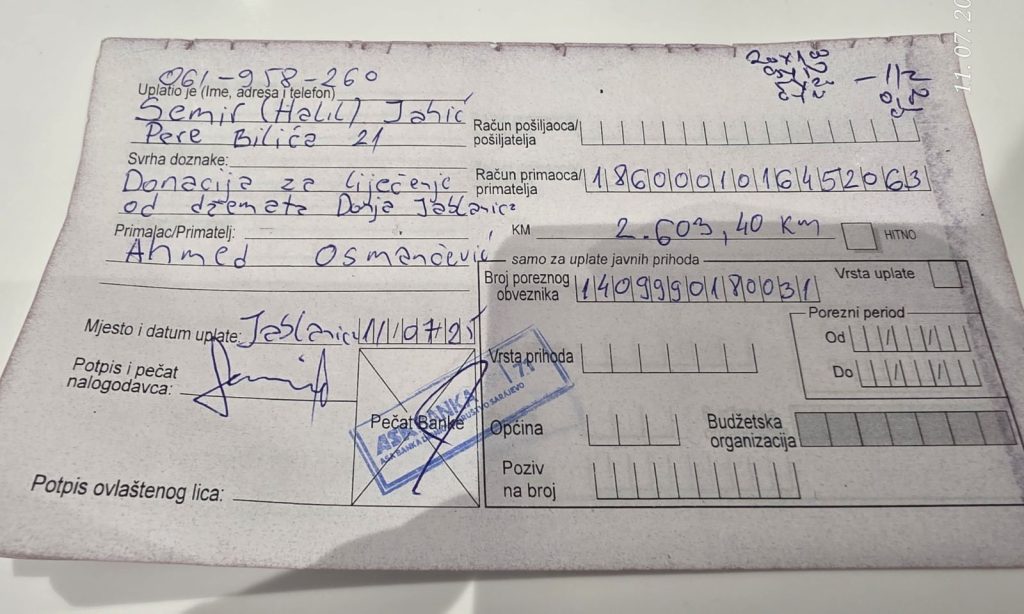 061-958-260
Uplatio je (Ime, adresa i telefon)
Semir (Halil) Jahić
Pere Bilića 21
Svrha doznake:
Donacija za liječenje
od džemata Donja Jablanica
Primalac/Primatelj:
Ahmed Osmančević
Mjesto i datum uplate: Jablanica 11 07 25
Potpis i pečat
nalogodavca:
Pečat Banke
ASA BANKA
Potpis ovlaštenog lica:
Račun pošiljaoca/
pošiljatelja
Račun primaoca/ 1860001016452063
primatelja
KM 2.603,40 KM HITNO
samo za uplate javnih prihoda
Broj poreznog
obveznika 1409990180031
Vrsta uplate
Porezni period
Od
Do
Vrsta prihoda
Općina
Budžetska
organizacija
Poziv
na broj
11.07.20